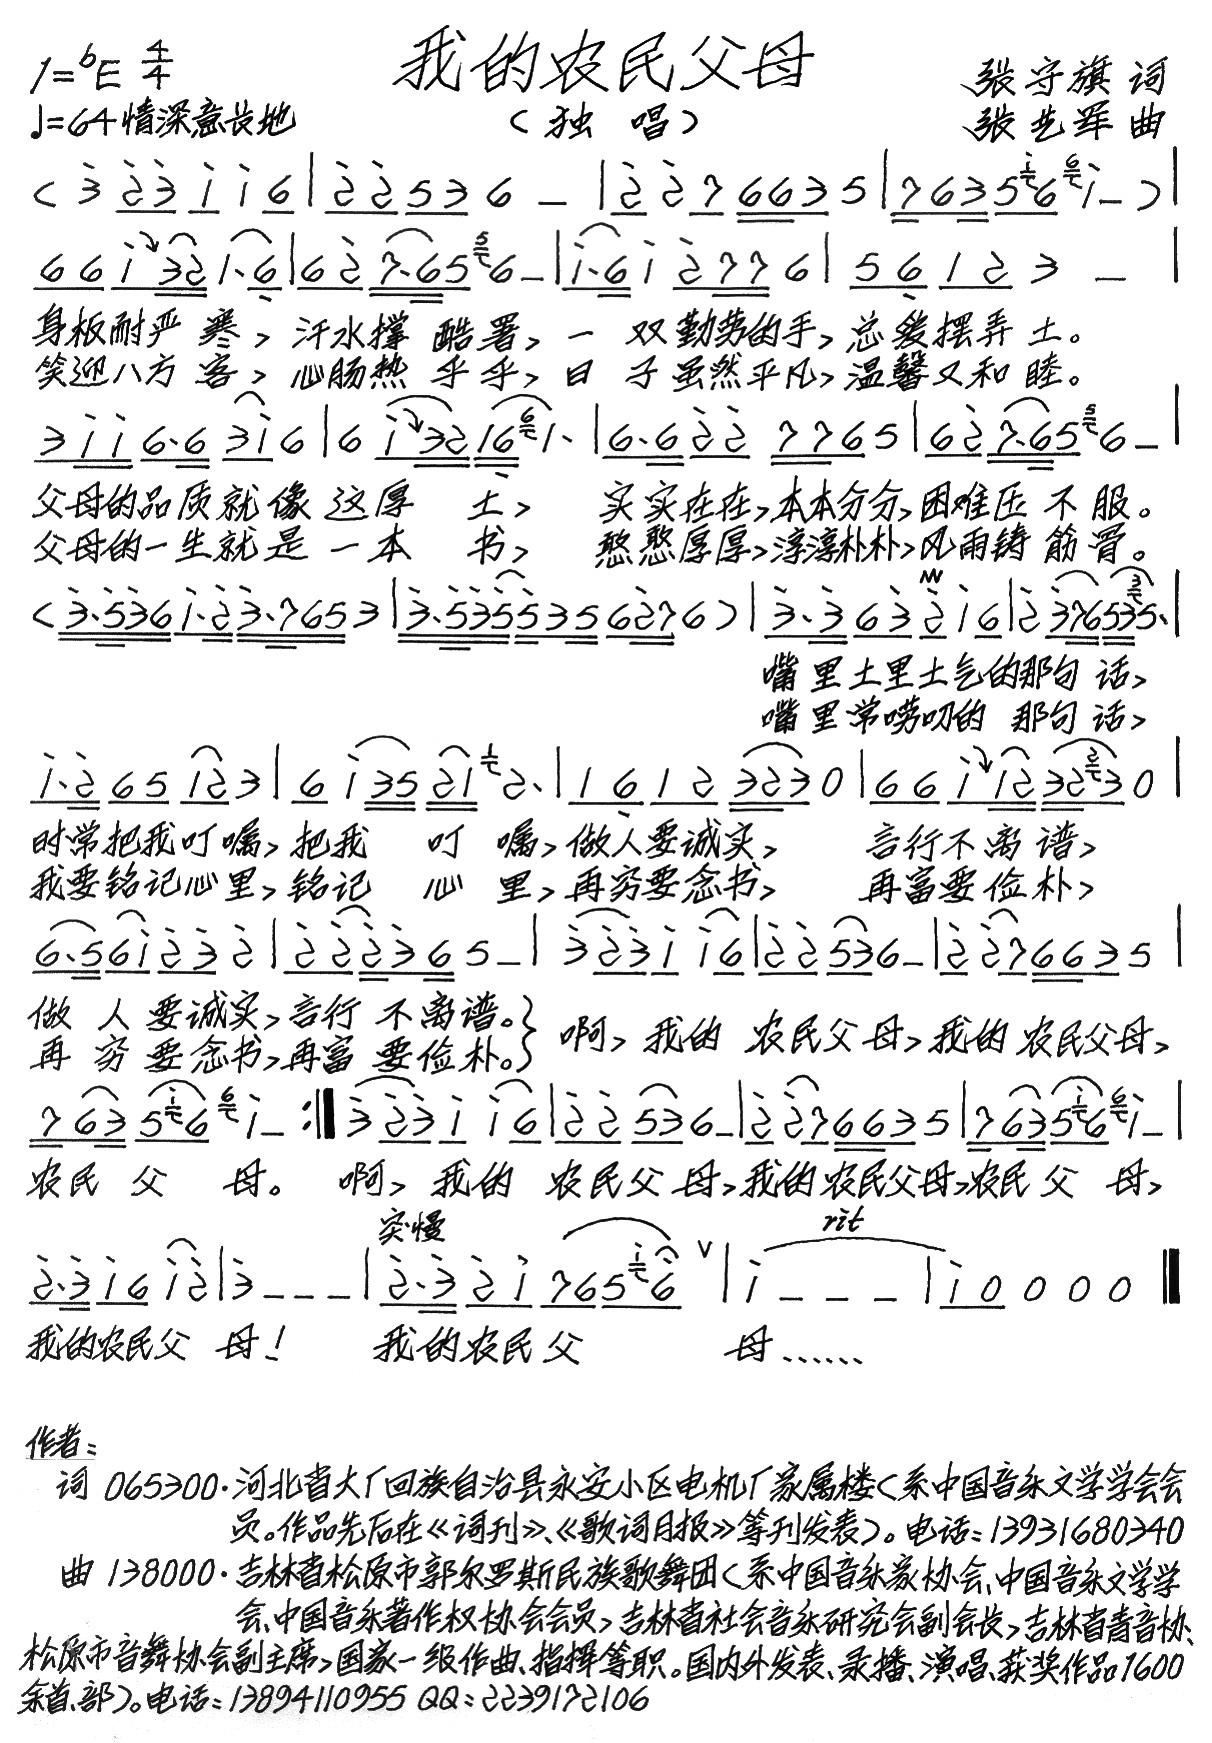 1=bE 4/4
我的农民父母
张守旗 词
♩=64 情深意长地
（独 唱）
张艺军 曲
( 3 2 3 1 1 6 | 2 2 5 3 6 – | 2 2 7 6 6 3 5 | 7 6 3 5 6 1 – ) |
6 6 1 3 2 1· 6 | 6 2 7· 6 5 6 – | 1· 6 1 2 7 7 6 | 5 6 1 2 3 – |
身板耐严 寒，汗水撑 酷暑，一 双勤劳的手，总爱摆弄 土。
笑迎八方 客，心肠热 乎乎，日 子虽然平凡，温馨又和 睦。
3 1 1 6· 6 3 1 6 | 6 1 3 2 1 6 1· | 6· 6 2 2 7 7 6 5 | 6 2 7· 6 5 6 – |
父母的品质就像这厚 土，实实在在，本本分分，困难压不服。
父母的一生就是一本 书，憨憨厚厚，淳淳朴朴，风雨铸筋骨。
( 3· 5 3 6 1· 2 3· 7 6 5 3 | 3· 5 3 5 5 3 5 6 2 7 6 ) | 3· 3 6 3 2 1 6 | 2 3 7 6 5 3 5· |
嘴里土里土气的那句话，
嘴里常唠叨的 那句话，
1· 2 6 5 1 2 3 | 6 1 3 5 2 1 2· | 1 6 1 2 3 2 3 0 | 6 6 1 1 2 3 2 3 0 |
时常把我叮嘱，把我 叮 嘱，做人要诚实， 言行不离谱，
我要铭记心里，铭记 心 里，再穷要念书， 再富要俭朴，
6· 5 6 1 2 3 2 | 2 2 2 3 6 5 – | 3 2 3 1 1 6 | 2 2 5 3 6 – | 2 2 7 6 6 3 5 |
做 人 要诚实，言行 不离谱。} 啊，我的 农民父母，我的农民父母，
再 穷 要念书，再富 要俭朴。}
7 6 3 5 6 1 – :‖ 3 2 3 1 1 6 | 2 2 5 3 6 – | 2 2 7 6 6 3 5 | 7 6 3 5 6 1 – |
农民 父 母。 啊，我的 农民父母，我的农民父母，农民父 母，
突慢 rit
2· 3 1 6 1 2 | 3 – – – | 2· 3 2 1 7 6 5 6 ∨ | 1 – – – | 1 0 0 0 0 ‖
我的农民父 母！ 我的农民父 母……
作者：
词 065300·河北省大厂回族自治县永安小区电机厂家属楼（系中国音乐文学学会会
员。作品先后在《词刊》、《歌词月报》等刊发表）。电话：13931680340
曲 138000·吉林省松原市郭尔罗斯民族歌舞团（系中国音乐家协会、中国音乐文学学
会、中国音乐著作权协会会员，吉林省社会音乐研究会副会长，吉林省青音协、
松原市音舞协会副主席，国家一级作曲、指挥等职。国内外发表、录播、演唱、获奖作品1600
余首、部）。电话：13894110955 QQ：2239172106